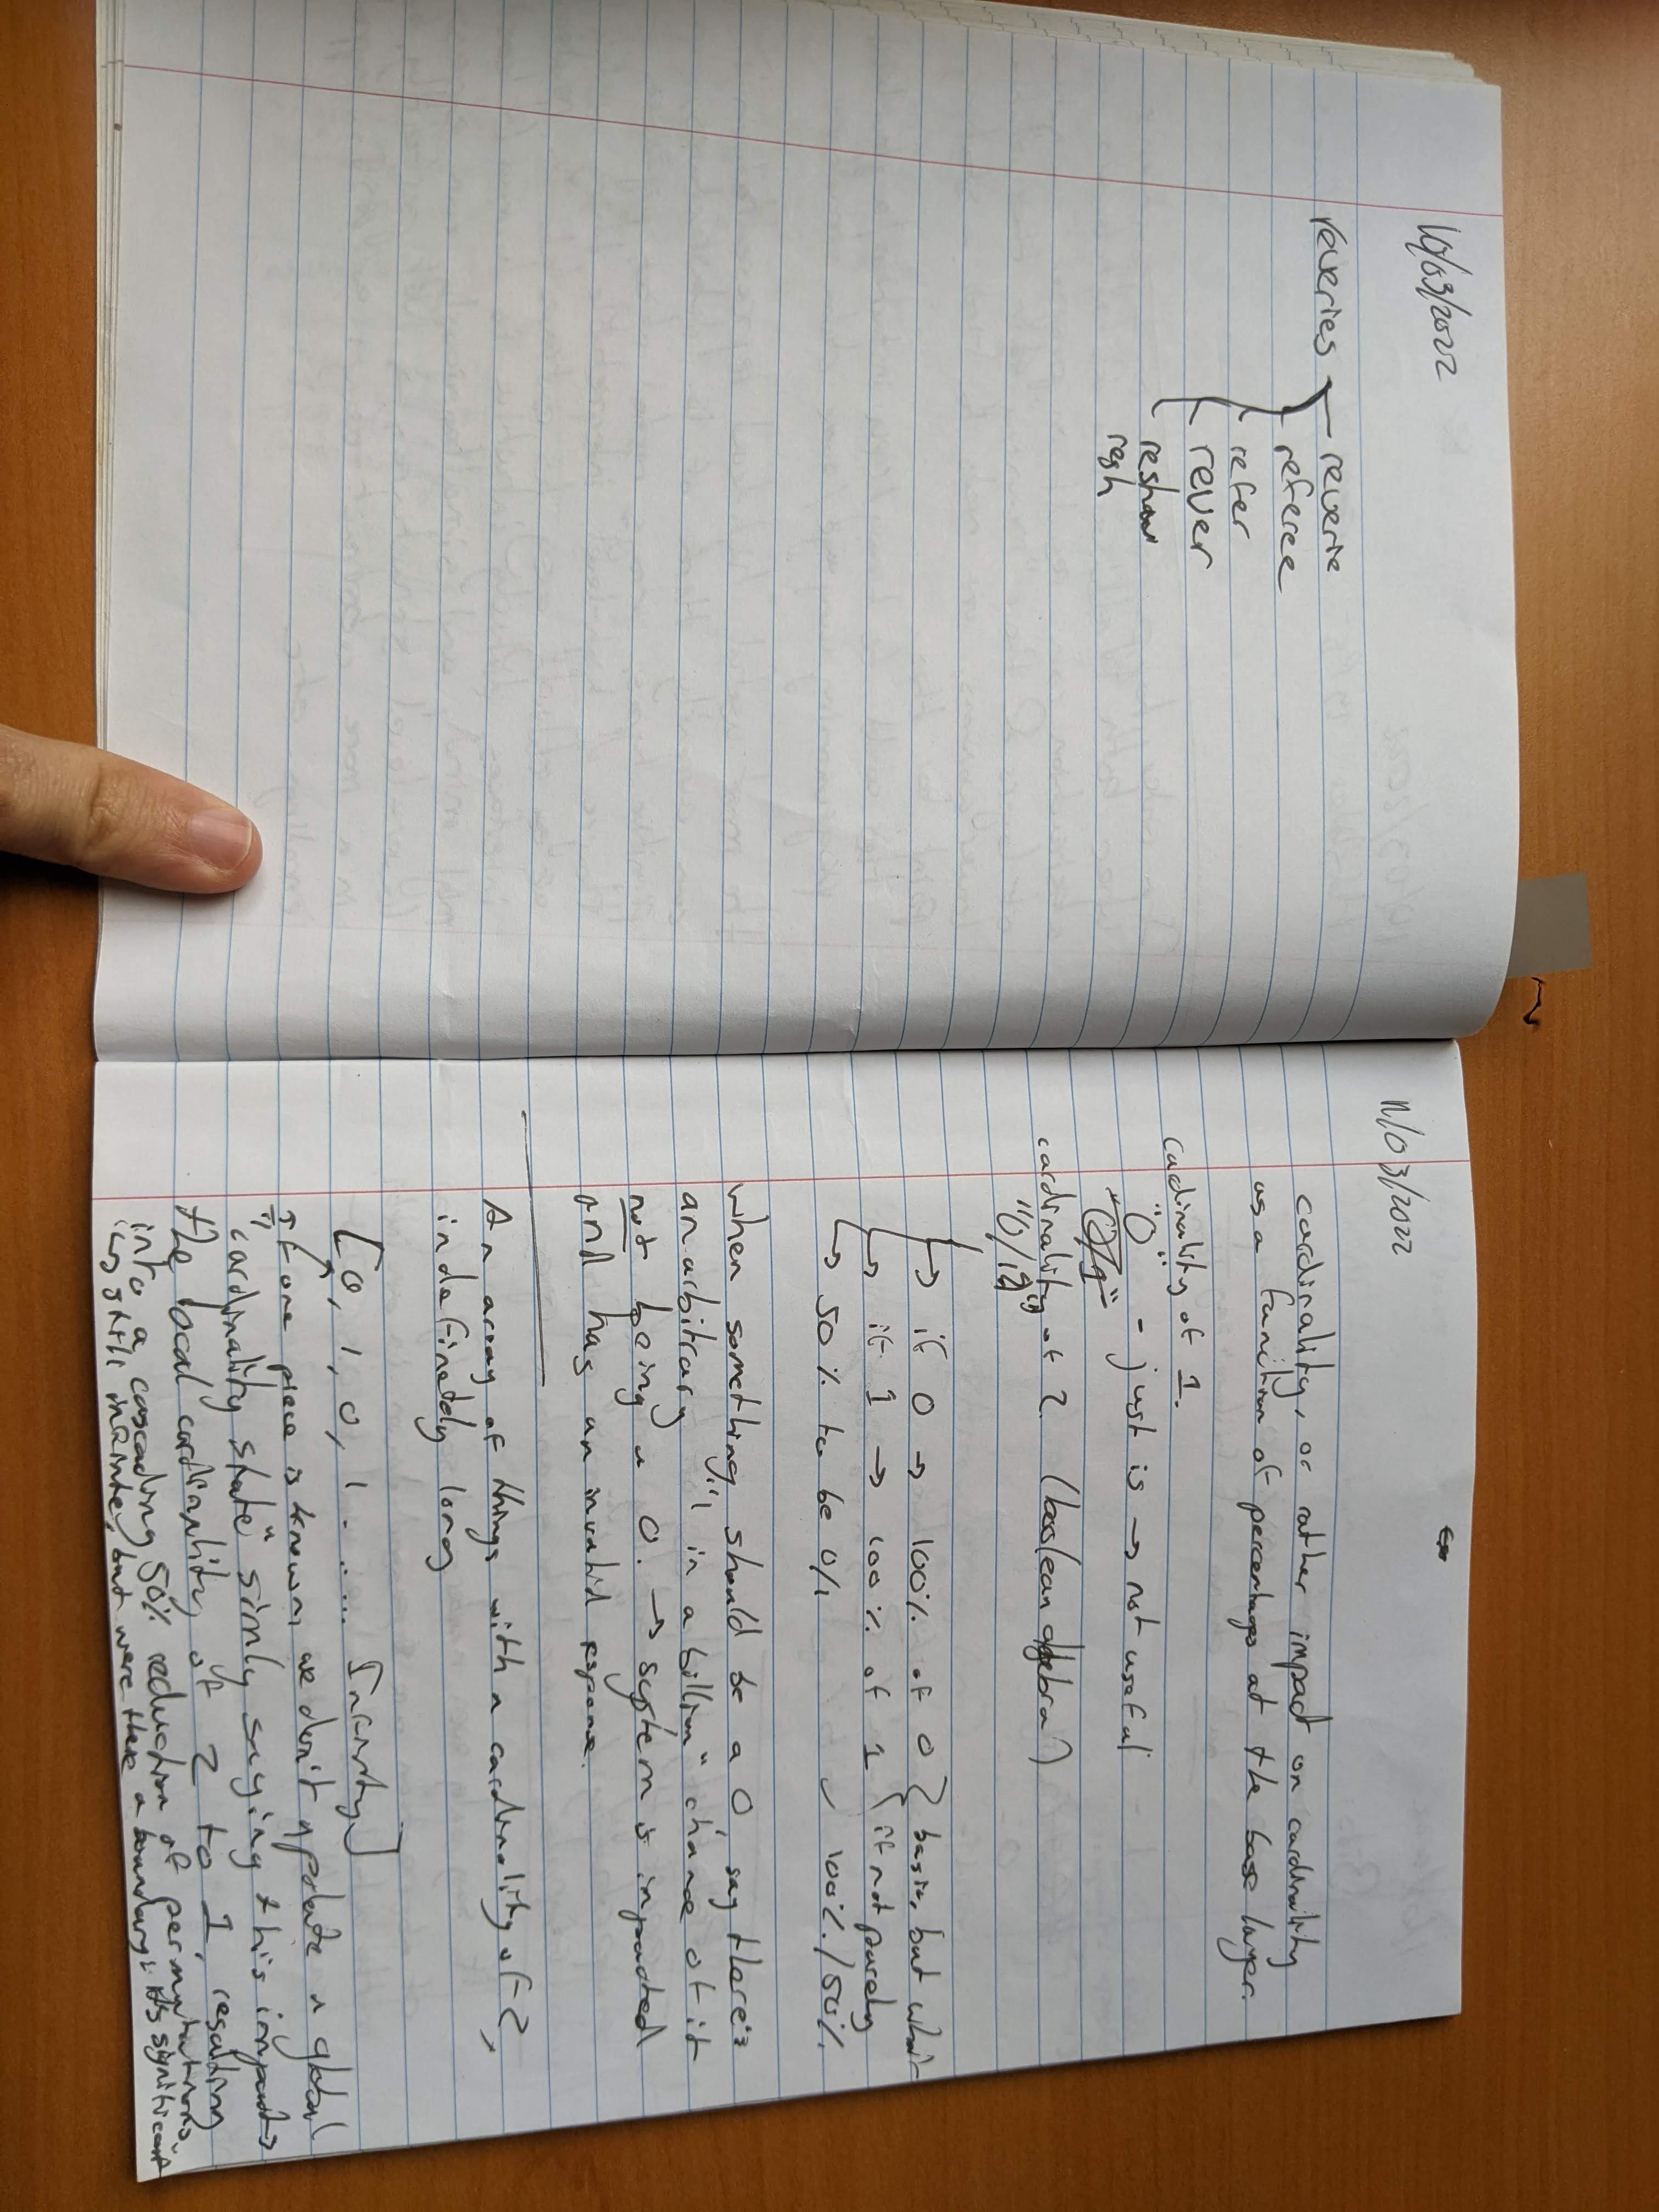 10/03/2022
reveries
reverie
referee
refer
rever
reshow
resh
11/03/2022
cardinality, or rather impact on cardinality
as a function of percentages at the base layer.
cardinality of 1.
"0" - just is → not useful
"0/1"
cardinality of 2 (boolean algebra)
"0/1"
→ if 0 → 100% of 0 } basic, but what
→ if 1 → 100% of 1 { if not purely
→ 50% to be 0/1 100%/50%
when something should be a 0, say there's
an arbitrary "1 in a billion" chance of it
not being a 0. → system is impacted
and has an invalid response.
An array of things with a cardinality of 2,
indefinetly long
[0, 1, 0, 1 ..... Infinity]
If one piece is known, we don't update a global
"cardinality state" simply saying this impacts
the local cardinality of 2 to 1, resulting
into a cascading 50% reduction of permutations.
is still infinite, but were there a boundary; it's significant